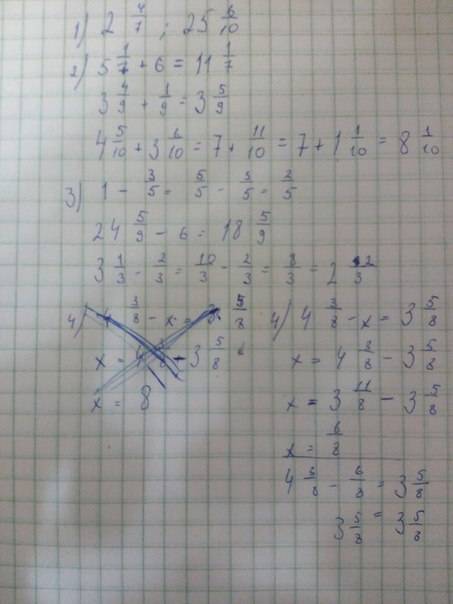 1) 2 4/7 ; 25 6/10
2) 5 1/7 + 6 = 11 1/7
3 4/9 + 1/9 = 3 5/9
4 5/10 + 3 6/10 = 7 + 11/10 = 7 + 1 1/10 = 8 1/10
3) 1 - 3/5 = 5/5 - 3/5 = 2/5
24 5/9 - 6 = 18 5/9
3 1/3 - 2/3 = 10/3 - 2/3 = 8/3 = 2 2/3
4) 4 3/8 - x = 3 5/8
x = 4 3/8 - 3 5/8
x = 8
4) 4 3/8 - x = 3 5/8
x = 4 3/8 - 3 5/8
x = 3 11/8 - 3 5/8
x = 6/8
4 3/8 - 6/8 = 3 5/8
3 5/8 = 3 5/8